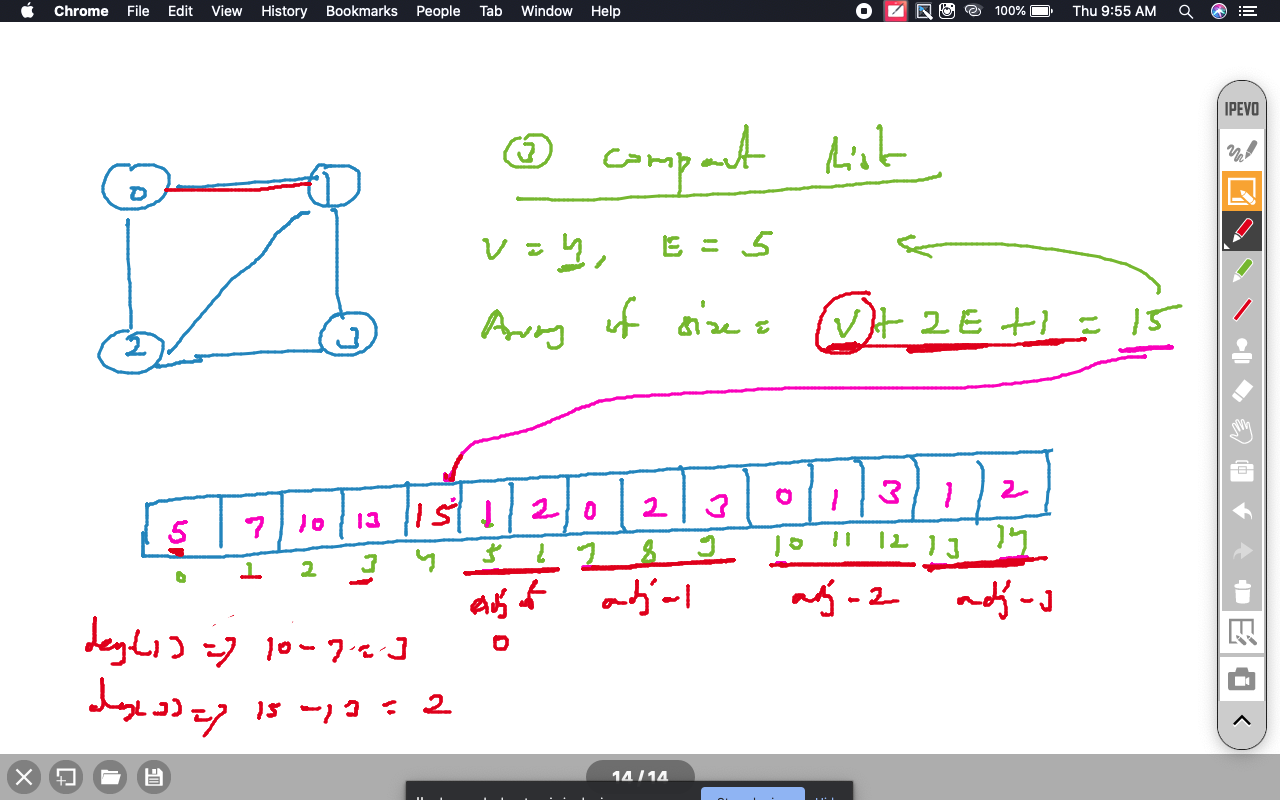 Chrome File Edit View History Bookmarks People Tab Window Help 100% Thu 9:55 AM
IPEVO
③ compact list
V = 4, E = 5
Array of size = V + 2E + 1 = 15
0 1
2 3
5 7 10 13 15 1 2 0 2 3 0 1 3 1 2
0 1 2 3 4 5 6 7 8 9 10 11 12 13 14
adj of 0 adj-1 adj-2 adj-3
deg(1) => 10 - 7 = 3
deg(3) => 15 - 13 = 2
14 / 14